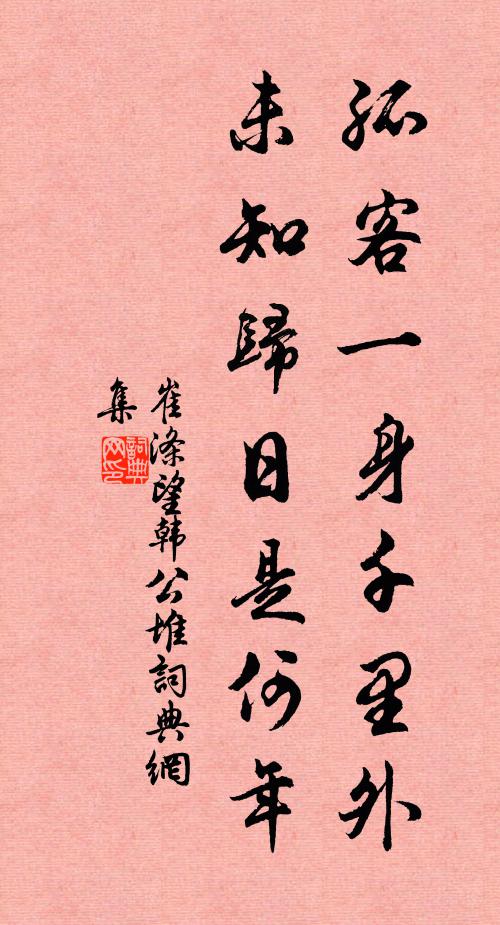 孤客一身千里外
未知歸日是何年
崔滌望韩公堆詞典網
集
詞典网印